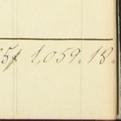 5f 1,059.18.